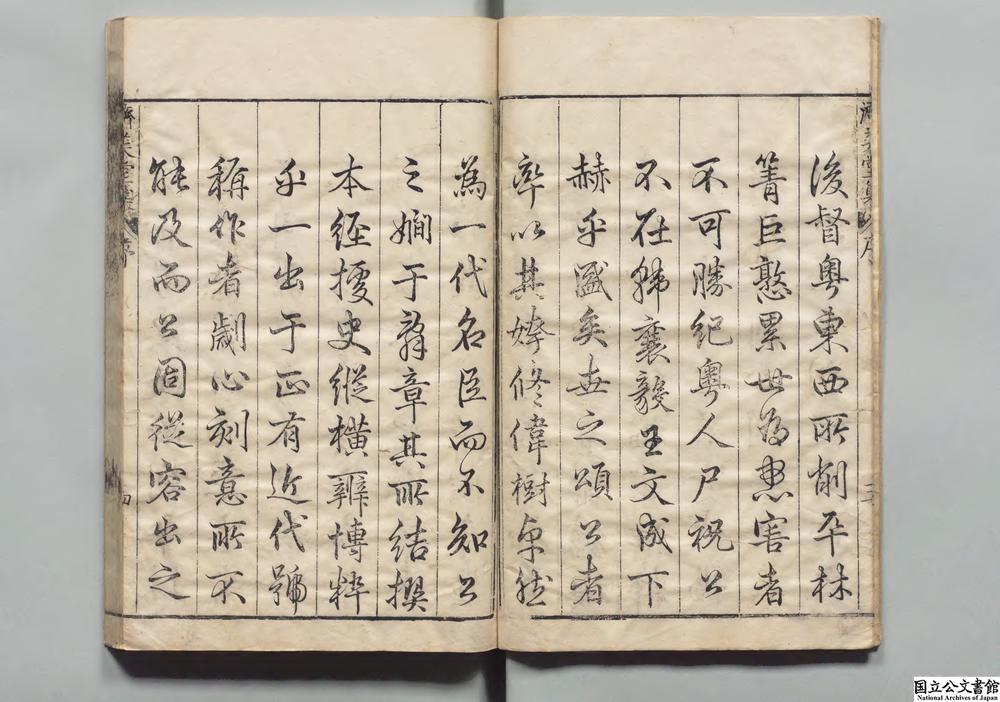 後督粵東西所削平林
箐巨憝累世為患害者
不可勝紀粵人尸祝公
不在韓襄毅王文成下
赫乎盛矣世之頌公者
率以其姱修偉樹卓然
為一代名臣而不知公
之嫺于辭章其所結撰
本經擾史縱橫辨博粹
乎一出于正有近代號
稱作者劌心刻意所不
能及而公固從容出之
序
四
国立公文書館
National Archives of Japan